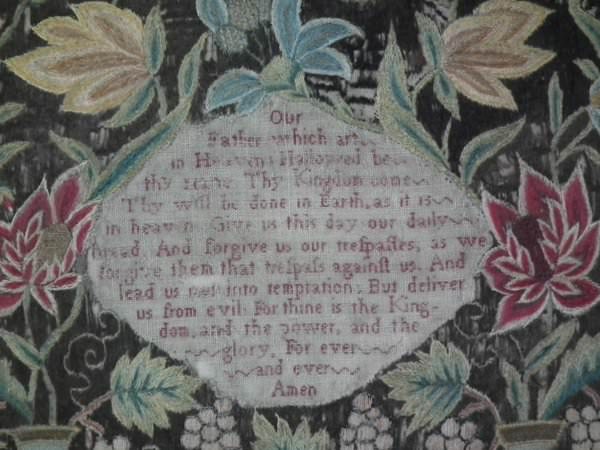 Our
Father which art
in Heaven: Hallowed be
thy name. Thy Kingdom come
Thy will be done in Earth, as it is
in heaven. Give us this day our daily
bread. And forgive us our treſpaſſes, as we
forgive them that treſpaſs againſt us. And
lead us not into temptation: But deliver
us from evil: For thine is the King-
dom, and the power, and the
glory, For ever
and ever
Amen